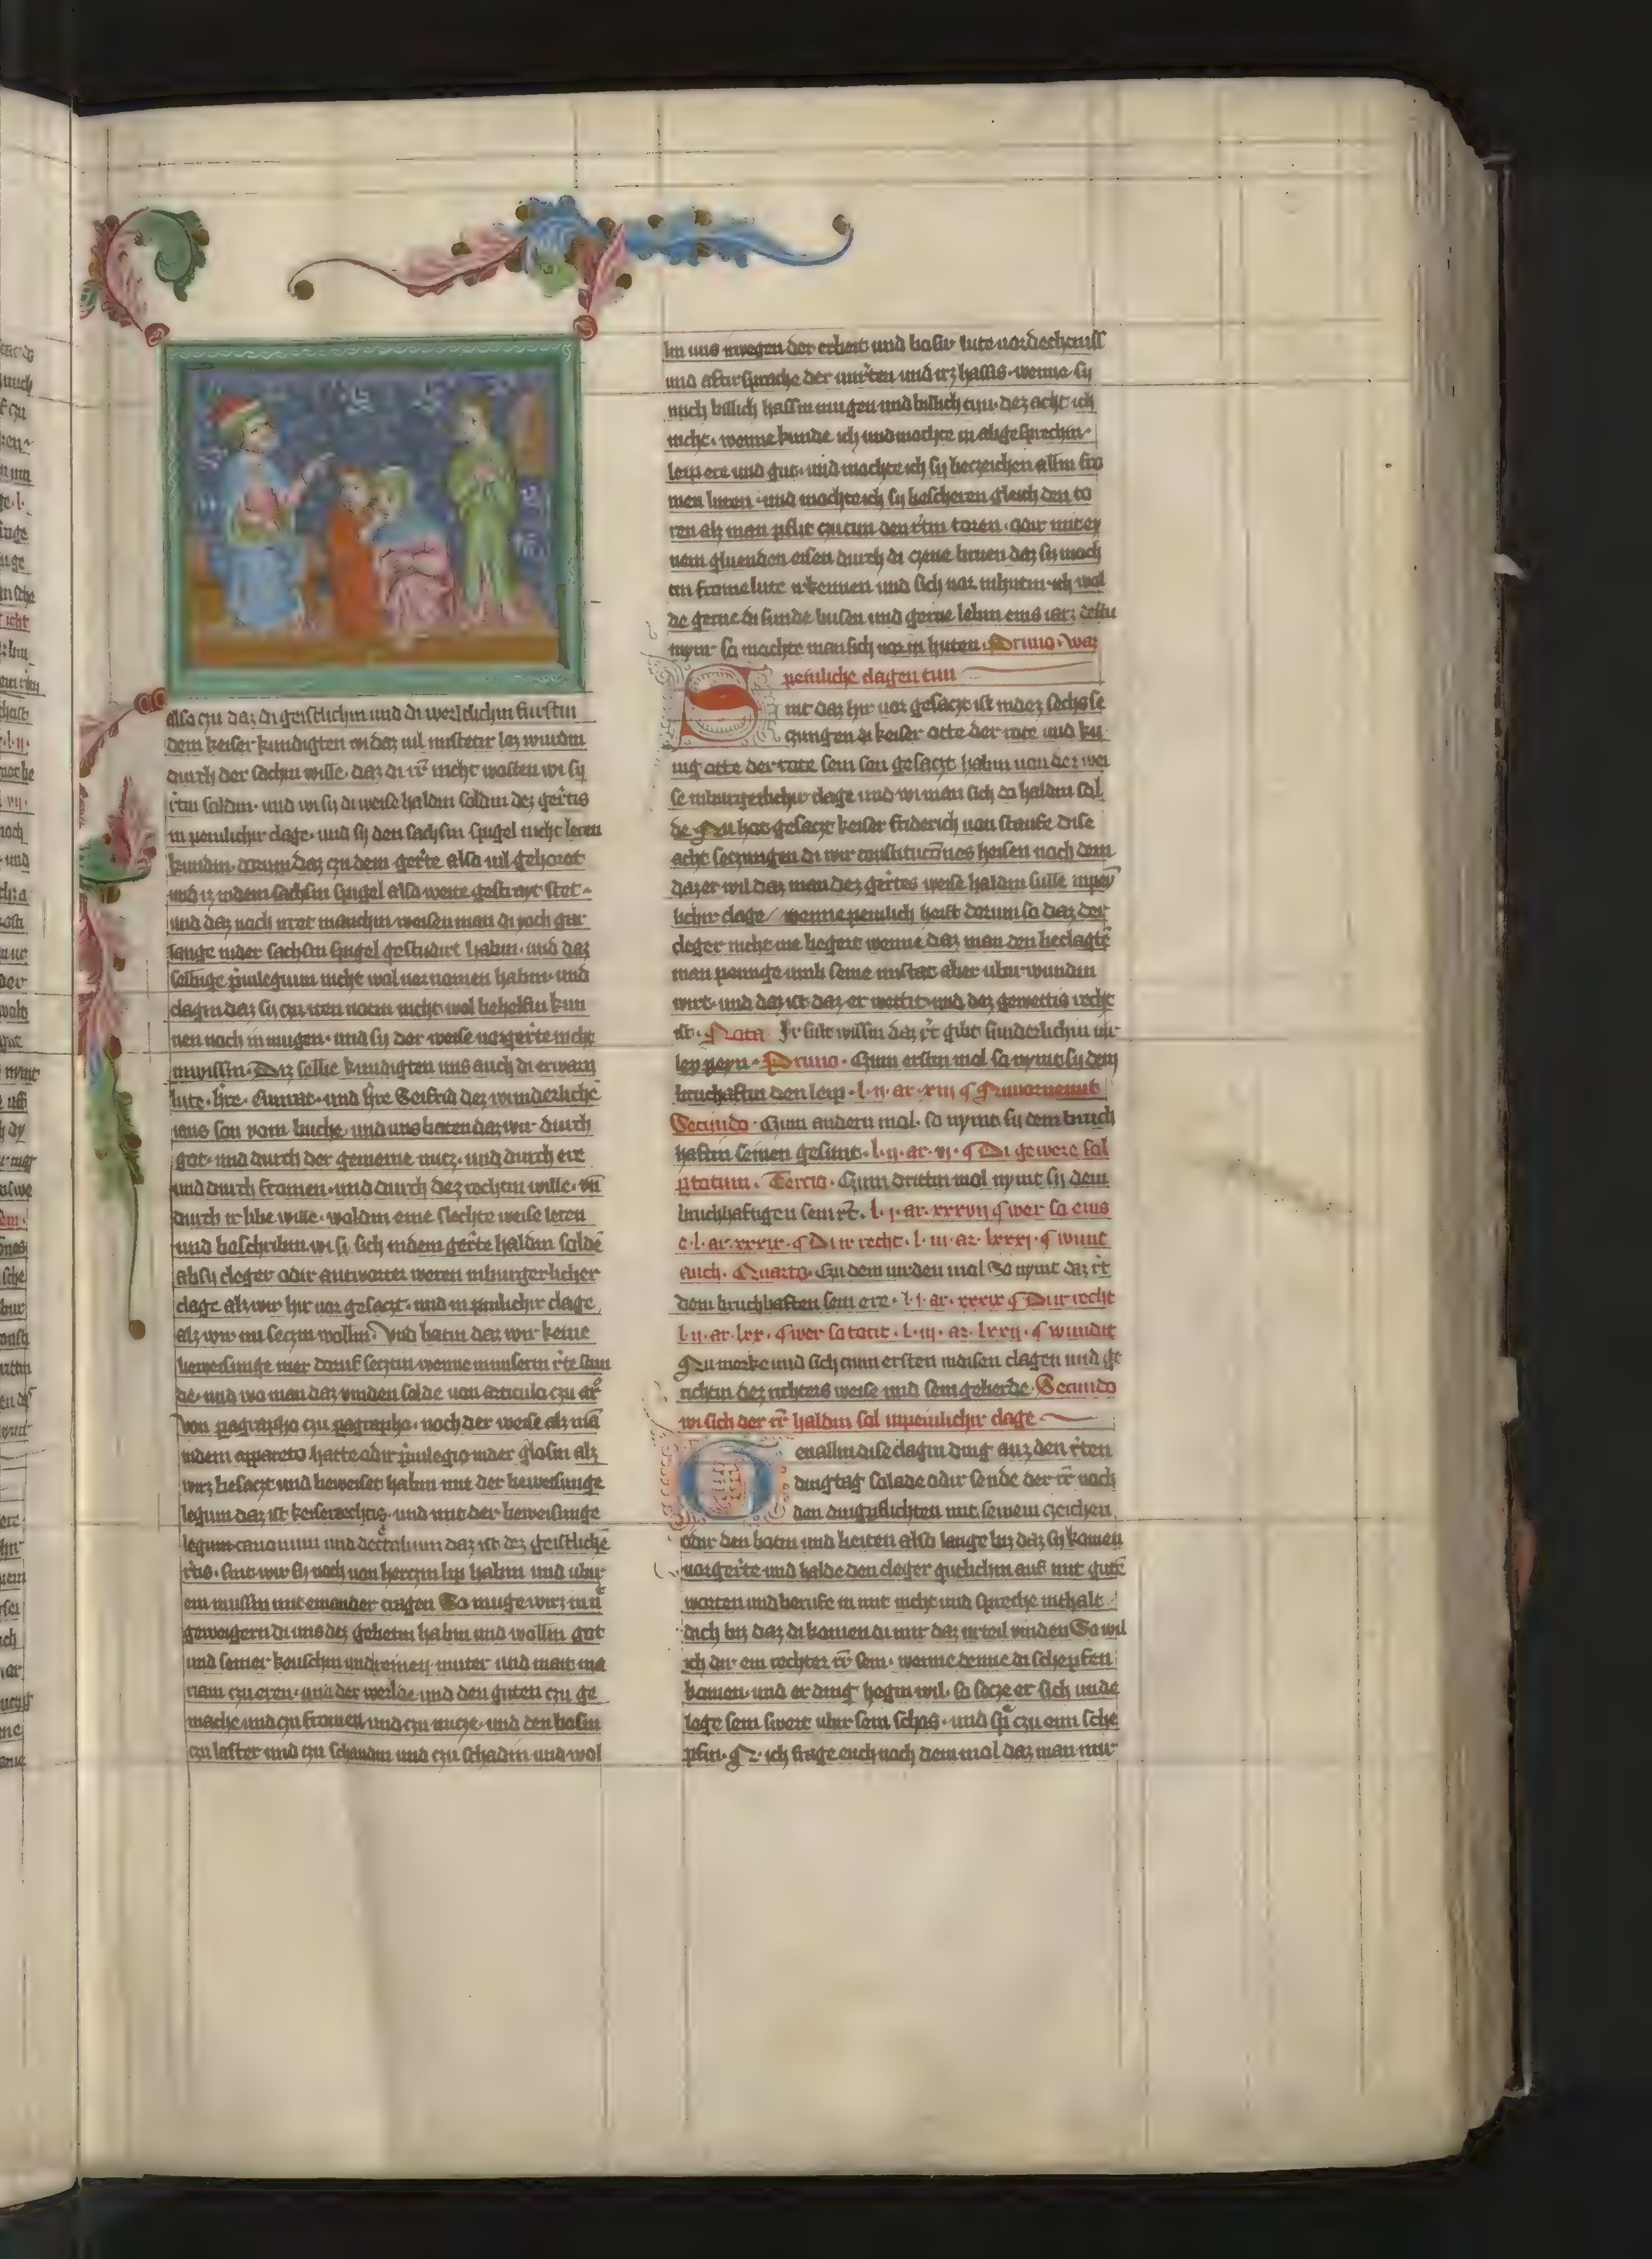 also czu daz di geistlichin und di werldichin fursten
dem keiser kundigten wi daz vil mistetir loz wurdin
durch der sachin wille daz di rr̄ nicht wosten wi sy
rr̄tin soldin und wi sy di weise haldin soldin dez gerr̄tis
in peinlichir clage und sy den sachsin spigel nicht leren
kundin dorum daz czu dem gerr̄te also vil gehoret
und iz indem sachsin spigel also weite gestrayt stet
und daz noch irret manchin weisen man di joch gar
lange inder sachsin spigel gestudirt habin und daz
selbige privilegium nicht wol vernomen habin und
clagin daz sy czu iren notin nicht wol behelfin kun
nen noch in mugen und sy der weise vorgerr̄te nicht
inwissin Diz selbe kundigten uns auch di erwarn
lute hre Cunrat und hre Seifrid dez wunderliche
jans son vom buche und uns baten daz wir durch
got und durch der gemeine nucz und durch ere
und durch fromen und durch dez rechtin wille vn̄
durch ir libe wille woldin eine slechte weise leren
und beschribin wi si sich indem gerr̄te haldin solde
ab sy cleger odir antworter weren inburgerlicher
clage alz wir hir vor gesaczt und in pinlichir clage
alz wir nu seczin wollin Und batin daz wir keine
beweisunge mer doruf seczin wenne in unserm rr̄te stun
de und wo man daz vinden solde von articulo czu ar̄
von paragrapho czu paragrapho noch der weise alz ma
indem apparato hatte odir privilegio inder glosin alz
wirz besaczt und beweiset habin mit der beweisunge
legum daz ist keiserrechtis und mit der beweisunge
legum canonum und decretalium daz ist dez geistliche
rr̄tis sint wir sy noch von herczin lip habin und ubir
ein mussin mit einander tragen So muge wirz in nicht
geweigern di uns dez gebetin habin und wollin got
und seiner keuschin und reinen muter und mait ma
riam czu eren und der werlde und den guten czu ge
mache und czu fromen und czu nucze und den bosin
czu laster und czu schandin und czu schadin und wol
lin uns irwegen der erbeit und bosir lute vordechtniss
und aftirsprache der unrr̄ten und irz hassis wenne sy
mich billich hassin mugen und billich tun dez acht ich
nicht wenne kunde ich und mochte in abgesprechin
leip ere und gut und mochte ich sy beczeichen allin fro
men luten und mochte ich sy bescheren gleich den to
ren alz man pflit czu tun den rr̄tin toren odir mit ey
nem gluenden eisen durch di czene burnen daz sy moch
ten frome lute irkennen und sich vor in hutin ich wol
de gerne di sunde busen und gerne lebin eins jarz deste
mynr so mochte man sich vor in huten Primo waz
peinliche clagen tun
Sint daz hir vor gesaczt ist indez sechs se
czungen di keiser otte der rote und ku
nig otte der rote sein son gesaczt habin von der wei
se inburgerlichir clage und wi man sich do haldin sol
de Nu hot gesaczt keiser friderich von staufe dise
acht seczungen di wir constituciones heisen noch dem
daz er wil daz man dez gerr̄tes weise haldin sulle inpey
lichir clage wenne peinlich heist dorum so daz der
cleger nicht me begert wenne daz man den beclagte
man peinige umb seine mistat aber ubir wundin
wirt und daz ist daz er wettit und dez gewettis recht
ist Nota Ir sult wissin daz rr̄t gibt sunderlichin vir
ley peyn Primo Czum erstin mol so nymt sy dem
bruchaftin den leip l ij ar xiij ¶ Nu vornemt
Secundo Czum andern mol so nymt sy dem bruch
haftin seinen gesunt l ij ar vj ¶ Di gewere sal
Tercio Czum drittin mol nymt sy dem
bruchhaftigen sein rr̄t l j ar xxxvij ¶ wer so eins
e l ar xxxix ¶ Dur recht l iii ar lxxxj ¶ wundit
auch Quarto Czu dem virden mol So nymt daz rr̄t
dem bruchhaften sein ere l j ar xxxix ¶ Dur recht
l ij ar lxx ¶ wer so totit l iij ar lxxij ¶ wundit
Nu merke und sich czum ersten weisen clagen und ge
richtin dez richters weise und sein geberde Secundo
wi sich der rr̄ haldin sol inpeinlichir clage
Czu allin dise clagin ding auz den rr̄ten
dingtag so lade odir sende der rr̄ noch
den dingpflichten mit seinem czeichen
odir den botin und beiten also lange biz daz sy komen
vorgerr̄te und halde den cleger gutlichin auf mit gute
worten und berufe in mit nicht und spreche inthalt
dich biz daz di komen di mir daz urteil vinden So wil
ich dir ein rechter rr̄ sein wenne denne di schepfen
komen und er ding hegin wil so secze er sich unde
lege sein swert ubir sein schos und spreche czu ein sche
pfin N ich frage euch noch dem mol daz man mir